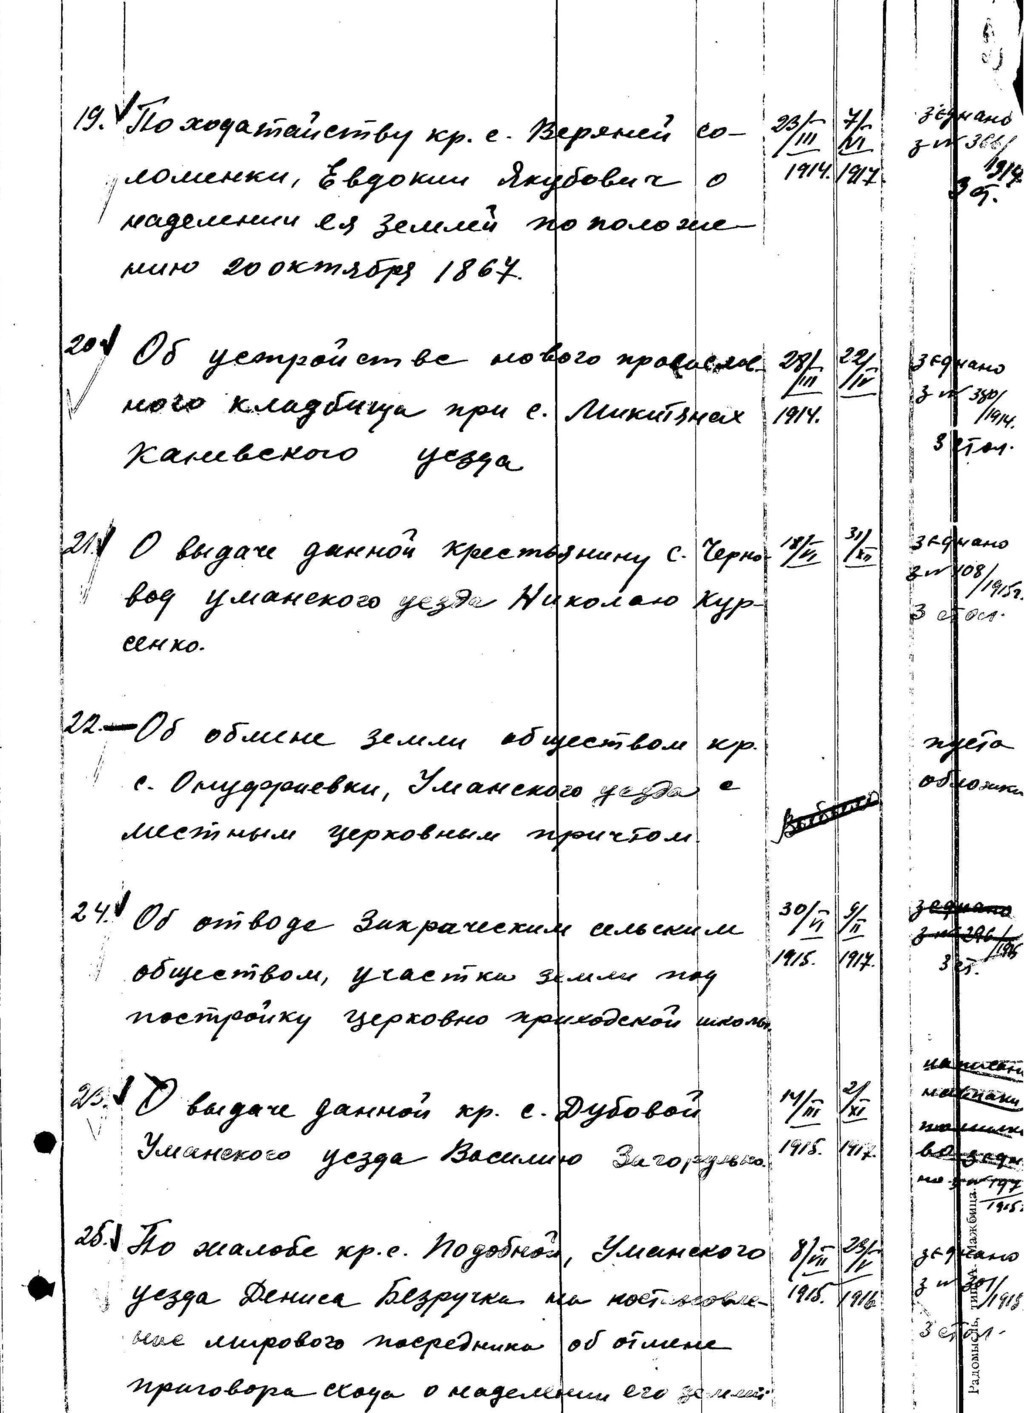 19. По ходатайству кр. с. Верхней Со- 23/III 7/VI зеднано
ломенки, Евдокии Якубович о 1914. 1917 з № 366/1914
наделении ея землей по положе- 3 ст.
нию 20 октября 1867.
20. Об устройстве нового православ- 28/III 22/IV зеднано
ного кладбища при с. Микитянах 1914. з № 380/1914.
Каневского уезда 3 стол.
21. О выдаче данной крестьянину с. Черно- 18/VI 31/XII зеднано
вод Уманского уезда Николаю Кур- з № 108/1915г.
сенко. 3 стол.
22. Об обмене земли обществом кр. пуста
с. Онуфриевки, Уманского уезда с обложка
местным церковным причтом. Выбыло
24. Об отводе Закраческим сельским 30/VI 9/II зеднано
обществом, участка земли под 1915. 1917. з № 296/1916
постройку церковно приходской школы 3 ст.
23. О выдаче данной кр. с. Дубовой 14/III 2/XI
Уманского уезда Василию Загорулько 1915. 1917.
но з № 197
1915.
25. По жалобе кр. с. Подобной, Уманского 8/VII 23/V зеднано
уезда Дениса Безручка на постановле- 1915. 1916 з № 301/1918
ние мирового посредника об отмене 3 стол.
приговора схода о наделении его землей
Радомысль, тип. А.